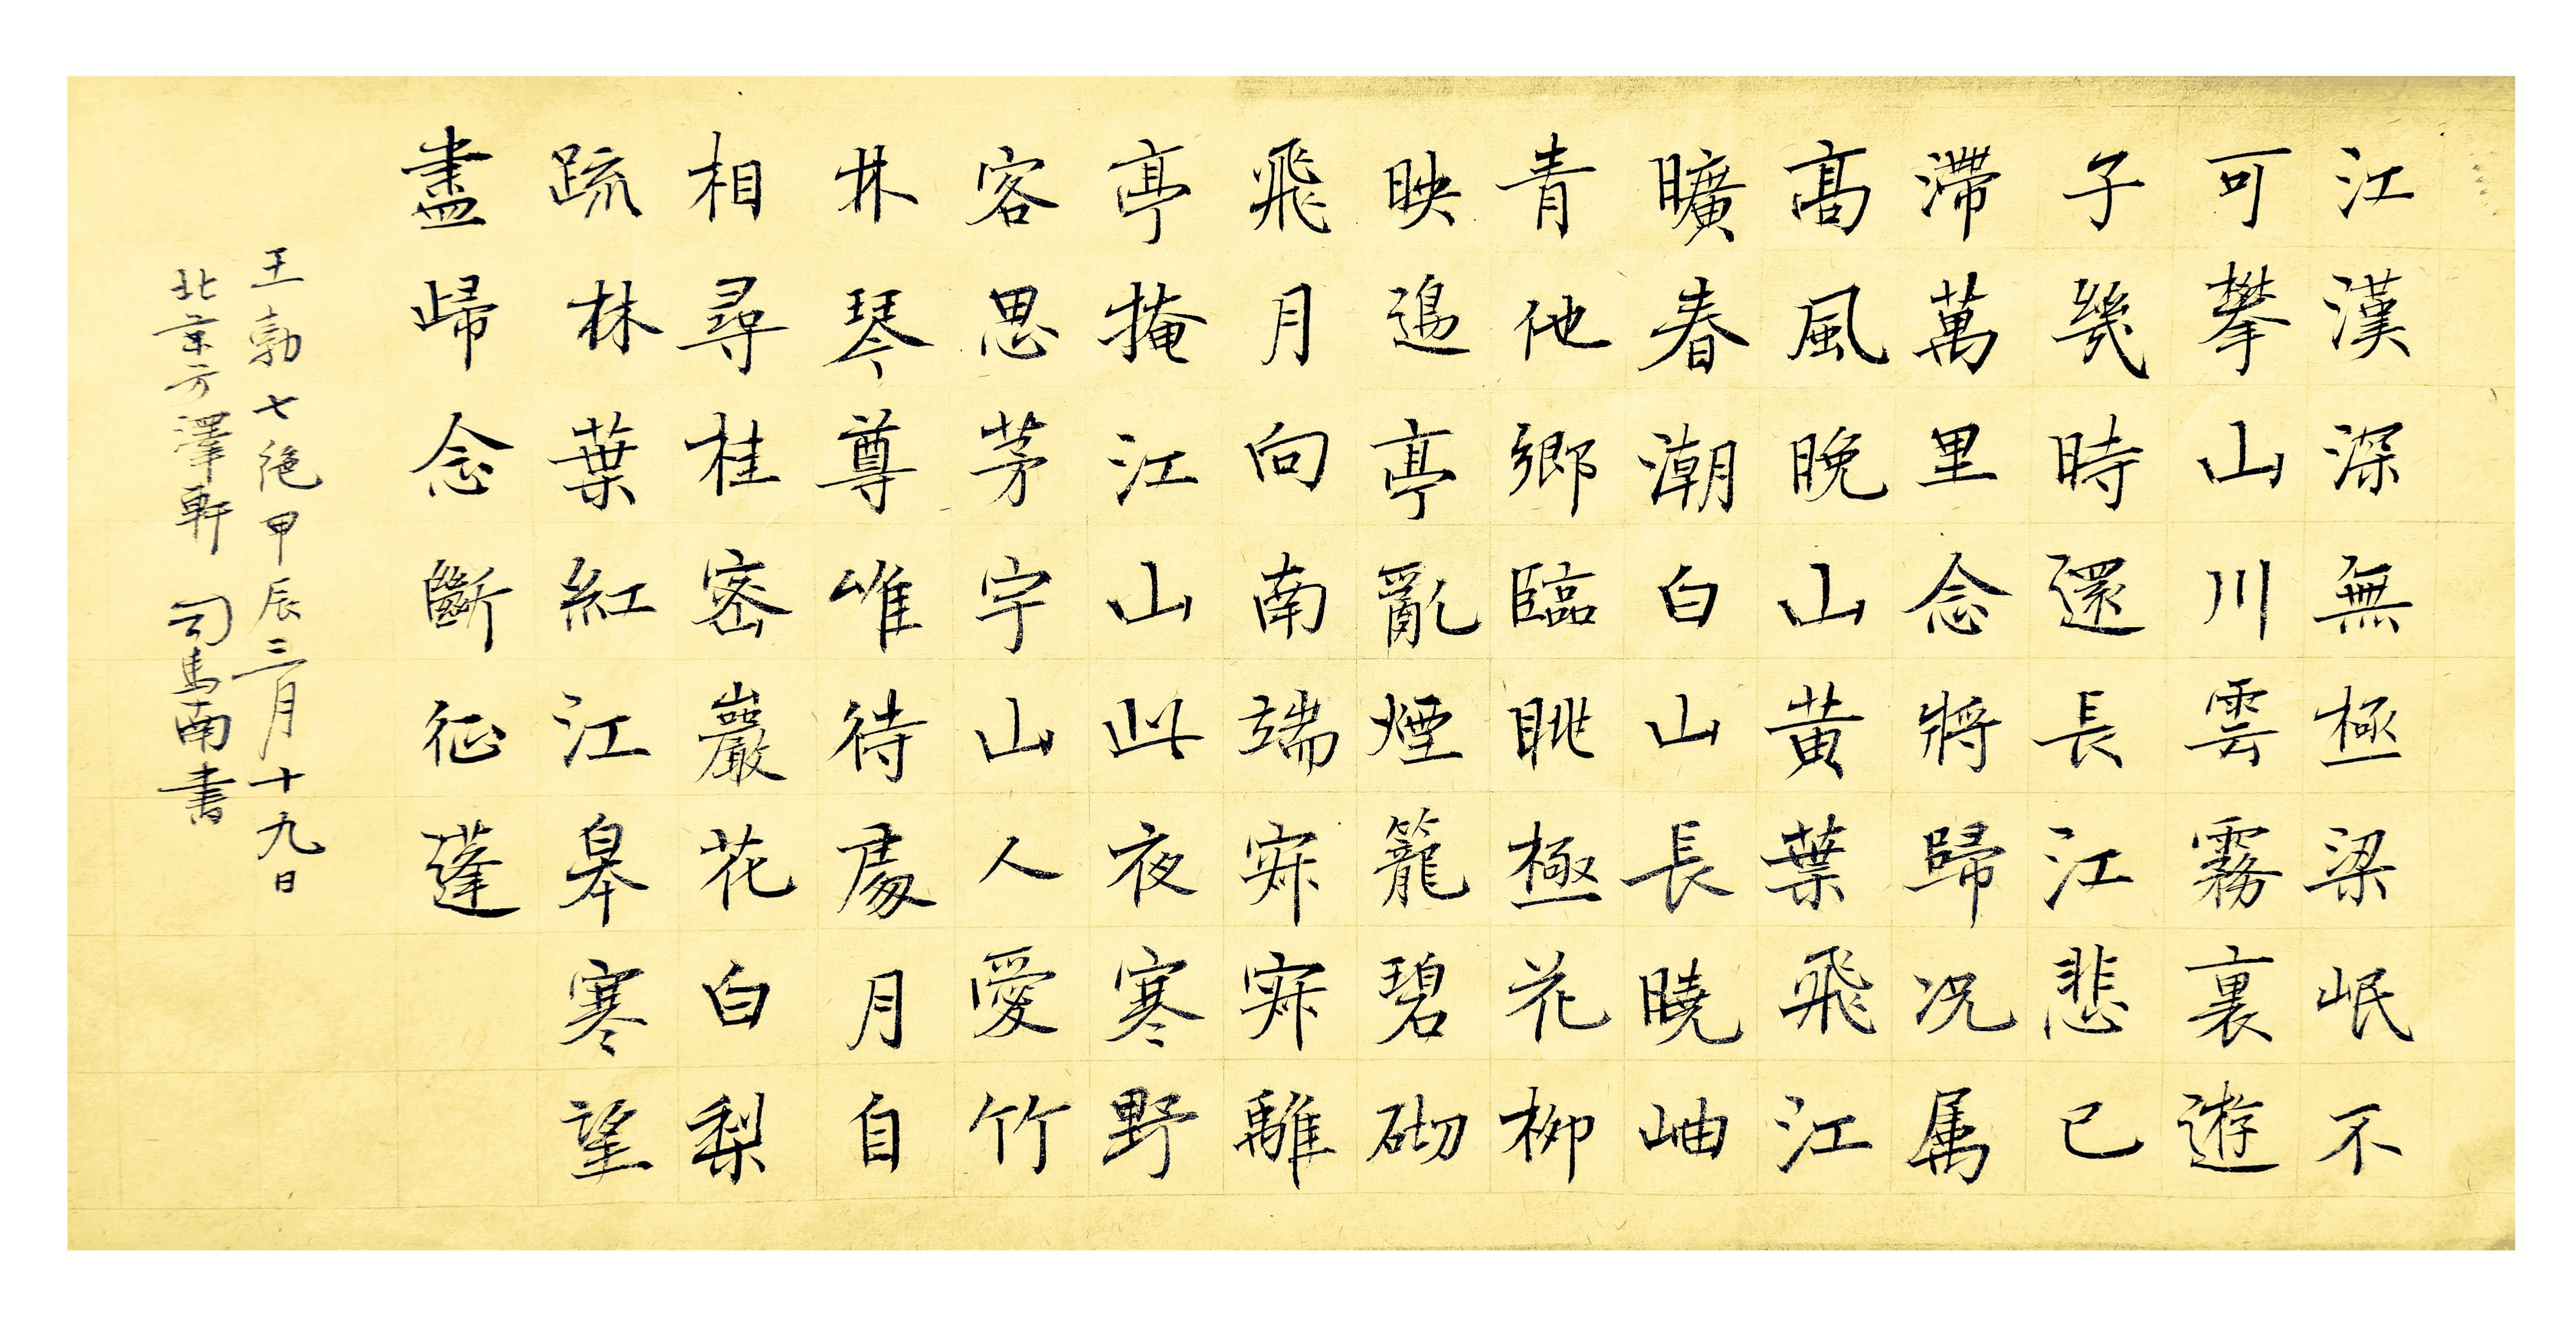 江漢深無極梁岷不
可攀山川雲霧裏遊
子幾時還長江悲已
滯萬里念將歸况属
髙風晚山黄葉飛江
曠春潮白山長曉岫
青他鄉臨眺極花柳
映邊亭亂煙籠碧砌
飛月向南端寂寂離
亭掩江山此夜寒野
客思茅宇山人愛竹
林琴尊唯待處月自
相尋桂密巖花白梨
疏林葉紅江皋寒望
盡歸念斷征蓬
王勃七絕甲辰三月十九日
北京方澤軒 司馬南書